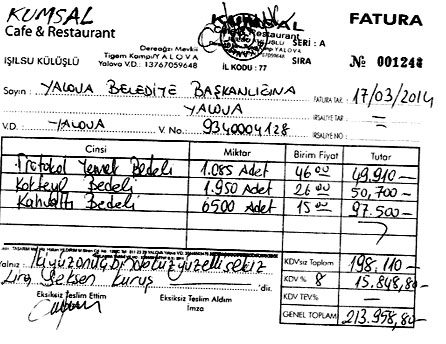 KUMSAL
Cafe & Restaurant
FATURA
Dereağzı Mevkii
Tigem Kampı/YALOVA
Yalova V.D. 13767059648
SERİ : A
IŞILSU KÜLÜŞLÜ
İL KODU : 77
SIRA № 001248
Sayın: YALOVA BELEDİYE BAŞKANLIĞINA
YALOVA
FATURA TAR. 17/03/2014
İRSALİYE TAR.
V.D. YALOVA V. No. 9340004128 İRSALİYE NO:
Cinsi Miktar Birim Fiyat Tutar
Protokol Yemek Bedeli 1.085 Adet 46 00 49,910-
Kokteyl Bedeli 1.950 Adet 26 00 50,700-
Kahvaltı Bedeli 6500 Adet 15 00 97.500-
Yalnız İkiyüzonüçbindokuzyüzellisekiz
Lira Seksen Kuruş 'dir.
KDVsiz Toplam 198.110-
KDV % 8 15,848,80
KDV TEV% —
GENEL TOPLAM 213,958,80
Eksiksiz Teslim Ettim
Eksiksiz Teslim Aldım
İmza